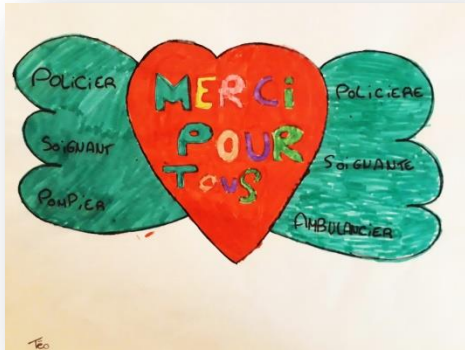 POLICIER
SOIGNANT
POMPIER
MERCI
POUR
TOUS
POLICIERE
SOIGNANTE
AMBULANCIER
Téo